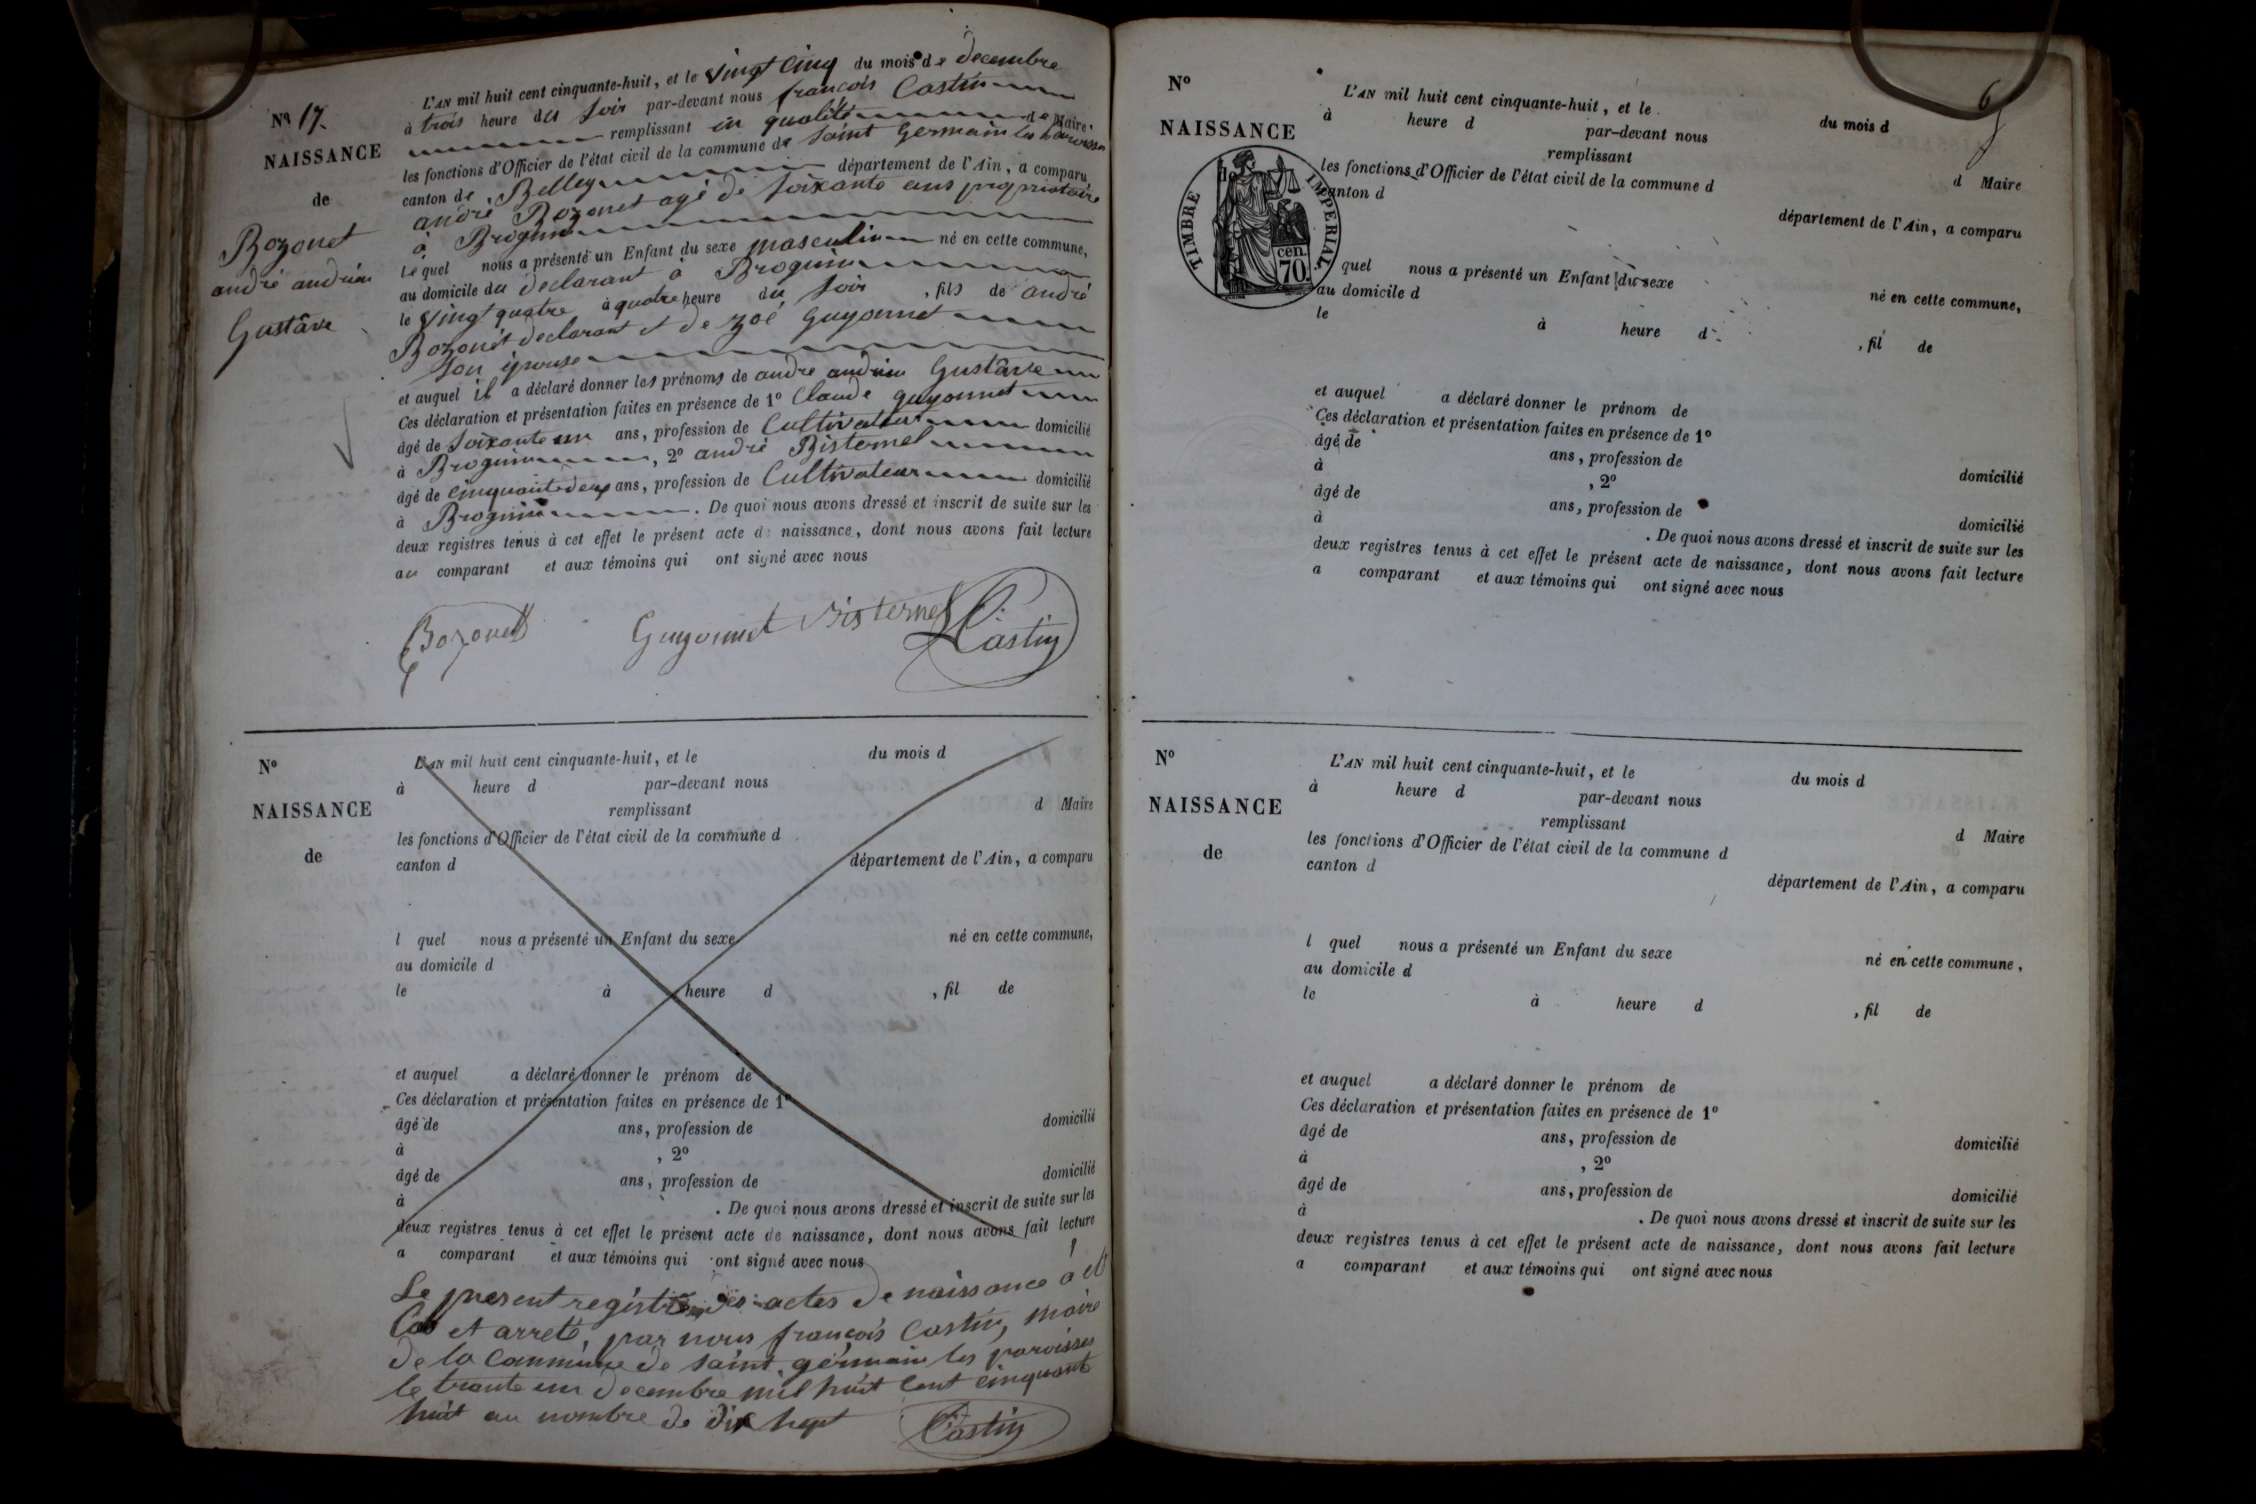 Nº 17.
NAISSANCE
de
Bozonet
andré andrien
Gustâve
L'AN mil huit cent cinquante-huit, et le vingt cinq du mois de decembre
à trois heure du soir par-devant nous françois Castin
remplissant en qualité de Maire
les fonctions d'Officier de l'état civil de la commune de saint Germain les paroisses
canton de Belley département de l'Ain, a comparu
andré Bozonet agé de soixante ans propriétaire
à Brognin
Lequel nous a présenté un Enfant du sexe masculin né en cette commune,
au domicile du declarant à Brognin
le vingt quatre à quatre heure du soir, fils de andré
Bozonet declarant et de zoé guyonnet
son épouse
et auquel il a déclaré donner les prénoms de andre andrien Gustâve
Ces déclaration et présentation faites en présence de 1º Claude guyonnet
âgé de soixante un ans, profession de Cultivateur domicilié
à Brognin, 2º andré Bisternel
âgé de cinquante deux ans, profession de Cultivateur domicilié
à Brognin. De quoi nous avons dressé et inscrit de suite sur les
deux registres tenus à cet effet le présent acte de naissance, dont nous avons fait lecture
au comparant et aux témoins qui ont signé avec nous
Bozonet Guyonnet Bisternel Castin
Nº
NAISSANCE
de
L'AN mil huit cent cinquante-huit, et le du mois d
à heure d par-devant nous
remplissant d Maire
les fonctions d'Officier de l'état civil de la commune d
canton d département de l'Ain, a comparu
l quel nous a présenté un Enfant du sexe né en cette commune,
au domicile d
le à heure d , fil de
et auquel a déclaré donner le prénom de
Ces déclaration et présentation faites en présence de 1º
âgé de ans, profession de domicilié
à , 2º
âgé de ans, profession de domicilié
à . De quoi nous avons dressé et inscrit de suite sur les
deux registres tenus à cet effet le présent acte de naissance, dont nous avons fait lecture
a comparant et aux témoins qui ont signé avec nous
Le present registre des actes de naissance a été
Clos et arreté, par nous françois Castin, maire
de la commune de saint germain les paroisses
le trente un decembre mil huit cent cinquante
huit au nombre de dix sept Castin
6
Nº
NAISSANCE
TIMBRE IMPERIAL
cen.
70.
L'AN mil huit cent cinquante-huit, et le du mois d
à heure d par-devant nous
remplissant d Maire
les fonctions d'Officier de l'état civil de la commune d
canton d département de l'Ain, a comparu
quel nous a présenté un Enfant du sexe né en cette commune,
au domicile d
le à heure d , fil de
et auquel a déclaré donner le prénom de
Ces déclaration et présentation faites en présence de 1º
âgé de ans, profession de domicilié
à , 2º
âgé de ans, profession de domicilié
à . De quoi nous avons dressé et inscrit de suite sur les
deux registres tenus à cet effet le présent acte de naissance, dont nous avons fait lecture
a comparant et aux témoins qui ont signé avec nous
Nº
NAISSANCE
de
L'AN mil huit cent cinquante-huit, et le du mois d
à heure d par-devant nous
remplissant d Maire
les fonctions d'Officier de l'état civil de la commune d
canton d département de l'Ain, a comparu
l quel nous a présenté un Enfant du sexe né en cette commune,
au domicile d
le à heure d , fil de
et auquel a déclaré donner le prénom de
Ces déclaration et présentation faites en présence de 1º
âgé de ans, profession de domicilié
à , 2º
âgé de ans, profession de domicilié
à . De quoi nous avons dressé et inscrit de suite sur les
deux registres tenus à cet effet le présent acte de naissance, dont nous avons fait lecture
a comparant et aux témoins qui ont signé avec nous